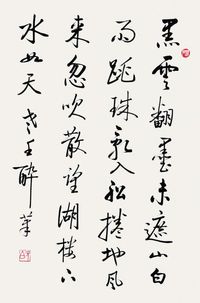 黑雲翻墨未遮山白
雨跳珠亂入船捲地風
来忽吹散望湖樓下
水如天 醉筆